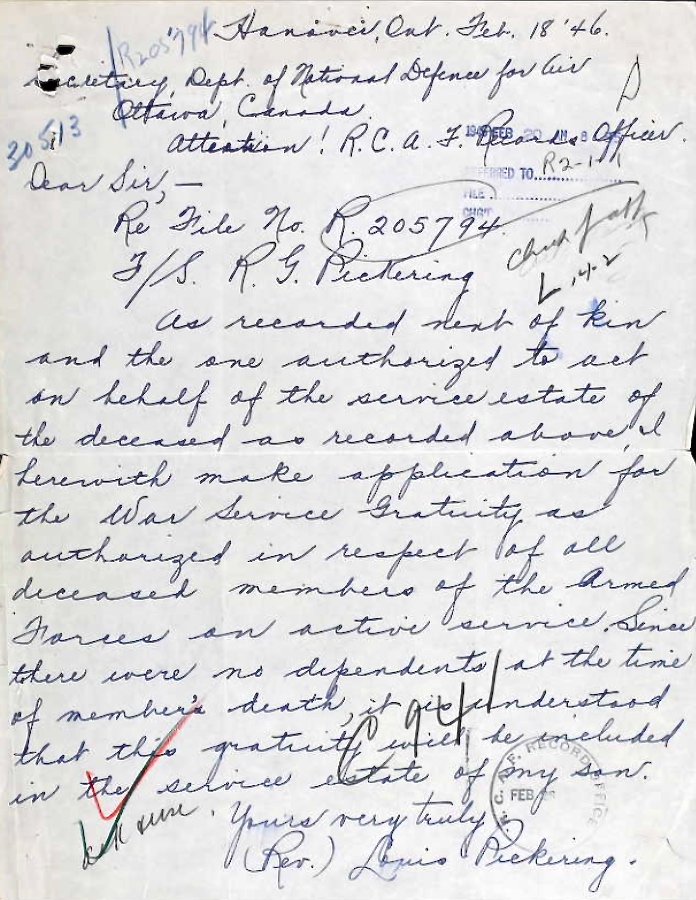 R205794
Hanover, Ont. Feb. 18 '46.
Secretary, Dept. of National Defence for Air
Ottawa, Canada
30513
Attention! R.C.A.F. Records Officer.
FEB 20 8
REFERRED TO R2-1-1
FILE
Dear Sir,—
Re File No. R. 205794
F/S. R. G. Pickering
L.14.2
As recorded next of kin
and the one authorized to act
on behalf of the service estate of
the deceased as recorded above, I
herewith make application for
the War Service Gratuity as
authorized in respect of all
deceased members of the Armed
Forces on active service. Since
there were no dependents at the time
of member's death, it is understood
that this gratuity will be included
in the service estate of my son.
C 941
R.C.A.F. RECORD OFFICE
FEB
Yours very truly
(Rev.) Louis Pickering.